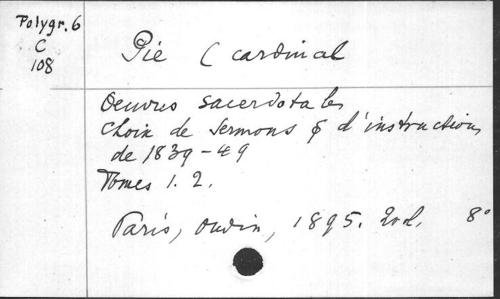 Polygr. 6
C
108
Pie (cardinal
Oeuvres sacerdotales
Choix de sermons & d'instructions
de 1839-49
Tomes 1. 2.
Paris, Oudin, 1895. 2 vol. 8°